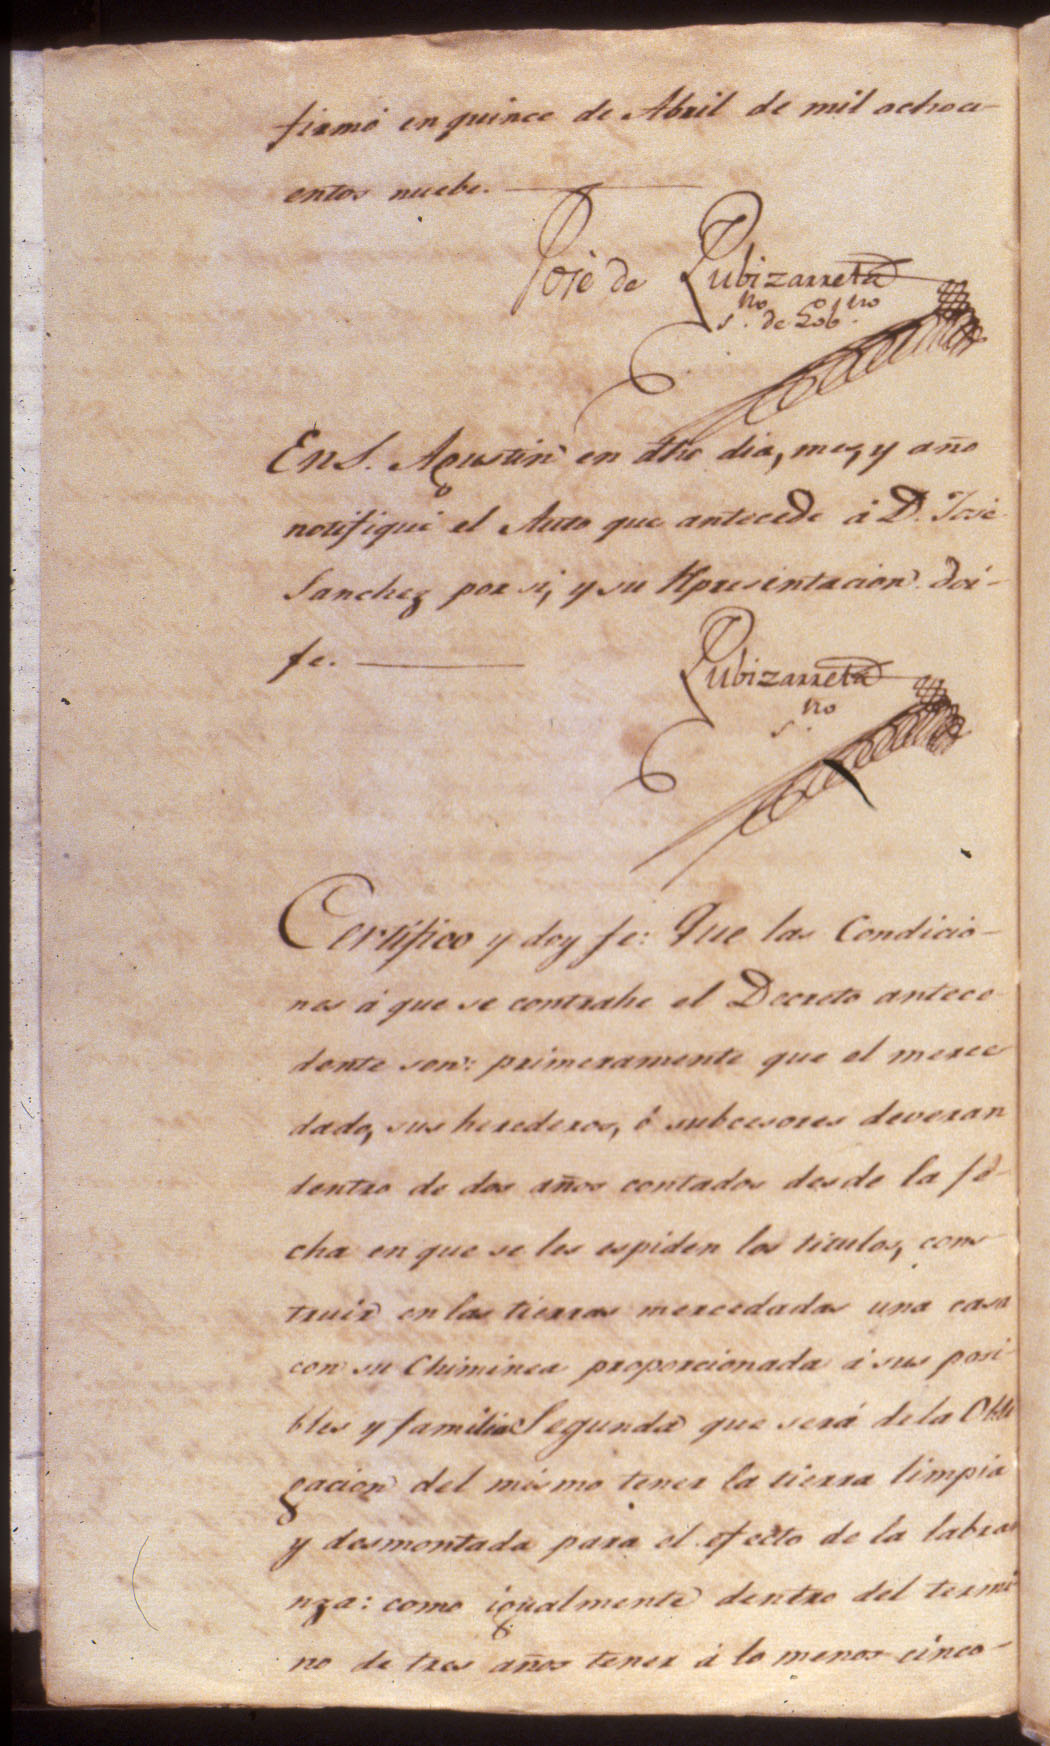 firmó en quince de Abril de mil ochoci-
entos nuebe.
José de Zubizarreta
s.no de Gob.no
En S. Agustin en dho dia, mes, y año
notifiqué el Auto que antecede á D. José
Sanchez por si, y su Rpresentacion doi-
fe.
Zubizarreta
s.no
Certifico y doy fe: Que las Condicio-
nes á que se contrahe el Decreto antece
dente son: primeramente que el merce
dado, sus herederos, ó subcesores deveran
dentro de dos años contados desde la fe-
cha en que se les espiden los titulos, cons
truir en las tierras mercedadas una casa
con su Chiminea proporcionada á sus posi-
bles y familia Segunda que será de la Obli
gacion del mismo tener la tierra limpia
y desmontada para el efecto de la labra
nza: como igualmente dentro del termi
no de tres años tener á lo menos cinco-